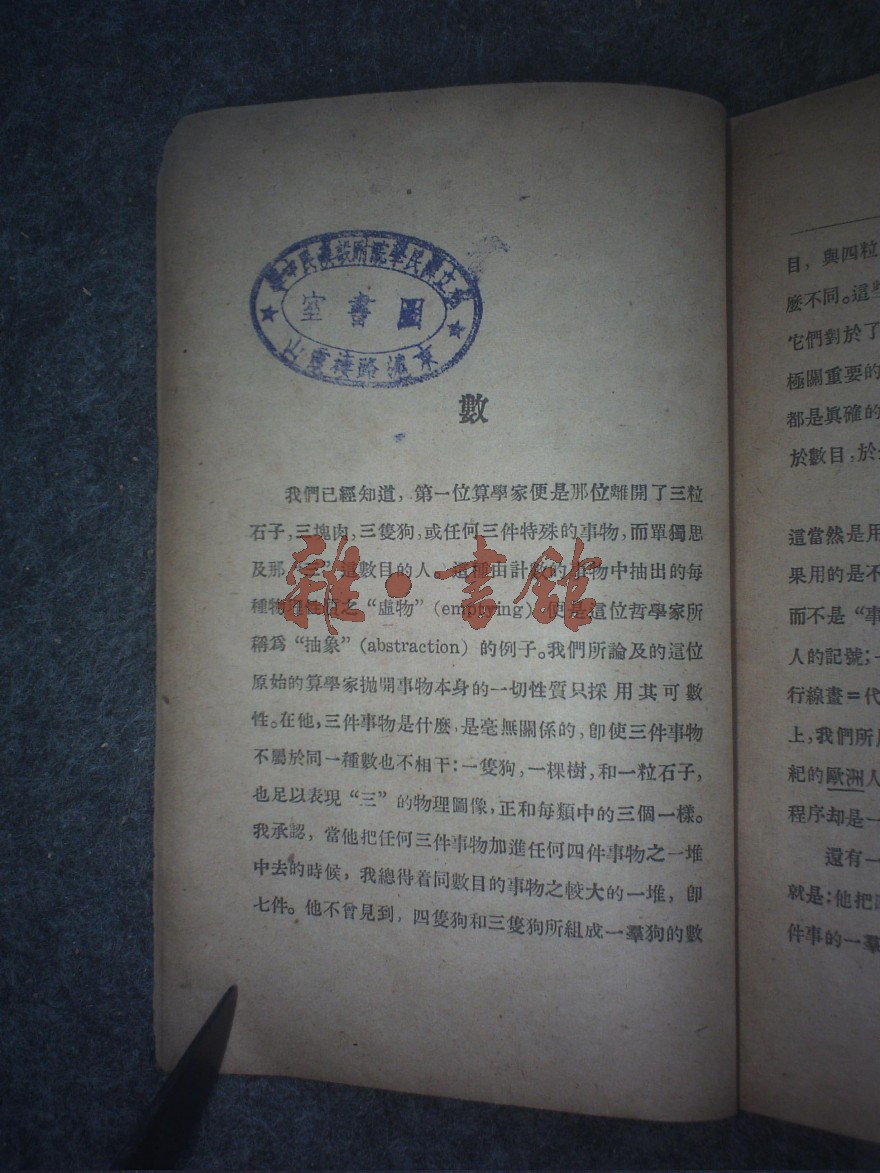 圖書室
數
我們已經知道，第一位算學家便是那位離開了三粒
石子，三塊肉，三隻狗，或任何三件特殊的事物，而單獨思
及那“三”這數目的人。這種由計數的事物中抽出的每
種物理性質之“虛物”(emptying)便是這位哲學家所
稱爲“抽象”(abstraction)的例子。我們所論及的這位
原始的算學家拋開事物本身的一切性質只採用其可數
性。在他，三件事物是什麼，是毫無關係的，卽使三件事物
不屬於同一種數也不相干：一隻狗，一棵樹，和一粒石子，
也足以表現“三”的物理圖像，正和每類中的三個一樣。
我承認，當他把任何三件事物加進任何四件事物之一堆
中去的時候，我總得着同數目的事物之較大的一堆，卽
七件。他不曾見到，四隻狗和三隻狗所組成一羣狗的數
雜·書館
目，與四粒
麼不同。這些
它們對於了
極關重要的
都是眞確的
於數目，於
這當然是用
果用的是不
而不是“事
人的記號；一
行線畫＝代
上，我們所
紀的歐洲人
程序却是一
還有一
就是：他把
件事的一羣